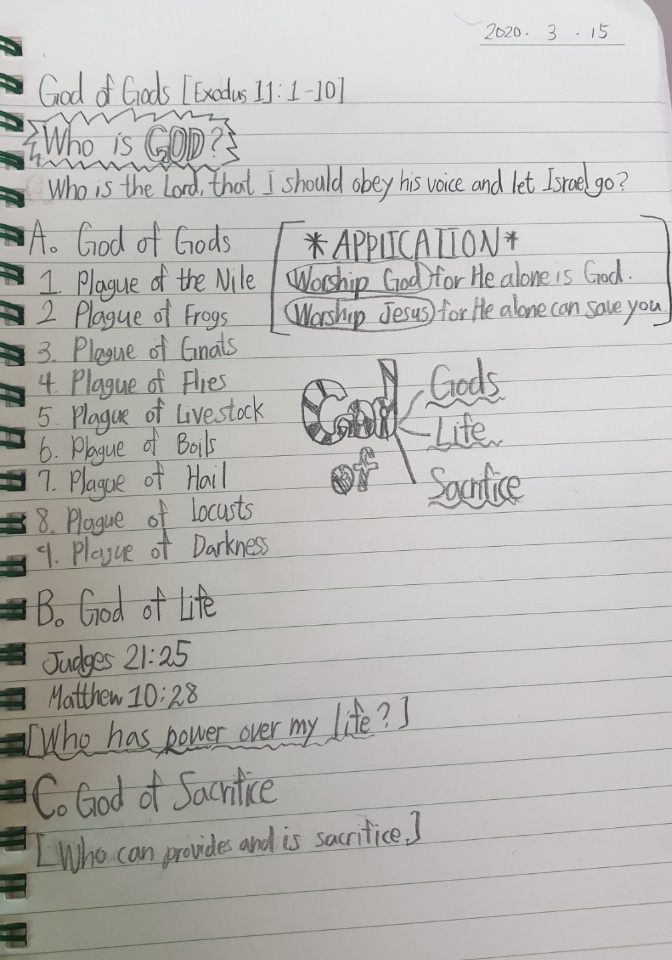 2020. 3. 15
God of Gods [Exodus 11:1-10]
Who is GOD?
Who is the Lord, that I should obey his voice and let Israel go?
A. God of Gods
1. Plague of the Nile
2 Plague of Frogs
3. Plague of Gnats
4. Plague of Flies
5. Plague of Livestock
6. Plague of Boils
7. Plague of Hail
8. Plague of Locusts
9. Plague of Darkness
*APPLICATION*
Worship God for He alone is God.
Worship Jesus for He alone can save you
God
of
Gods
Life
Sacrifice
B. God of Life
Judges 21:25
Matthew 10:28
[Who has power over my life?]
C. God of Sacrifice
[Who can provides and is sacrifice.]